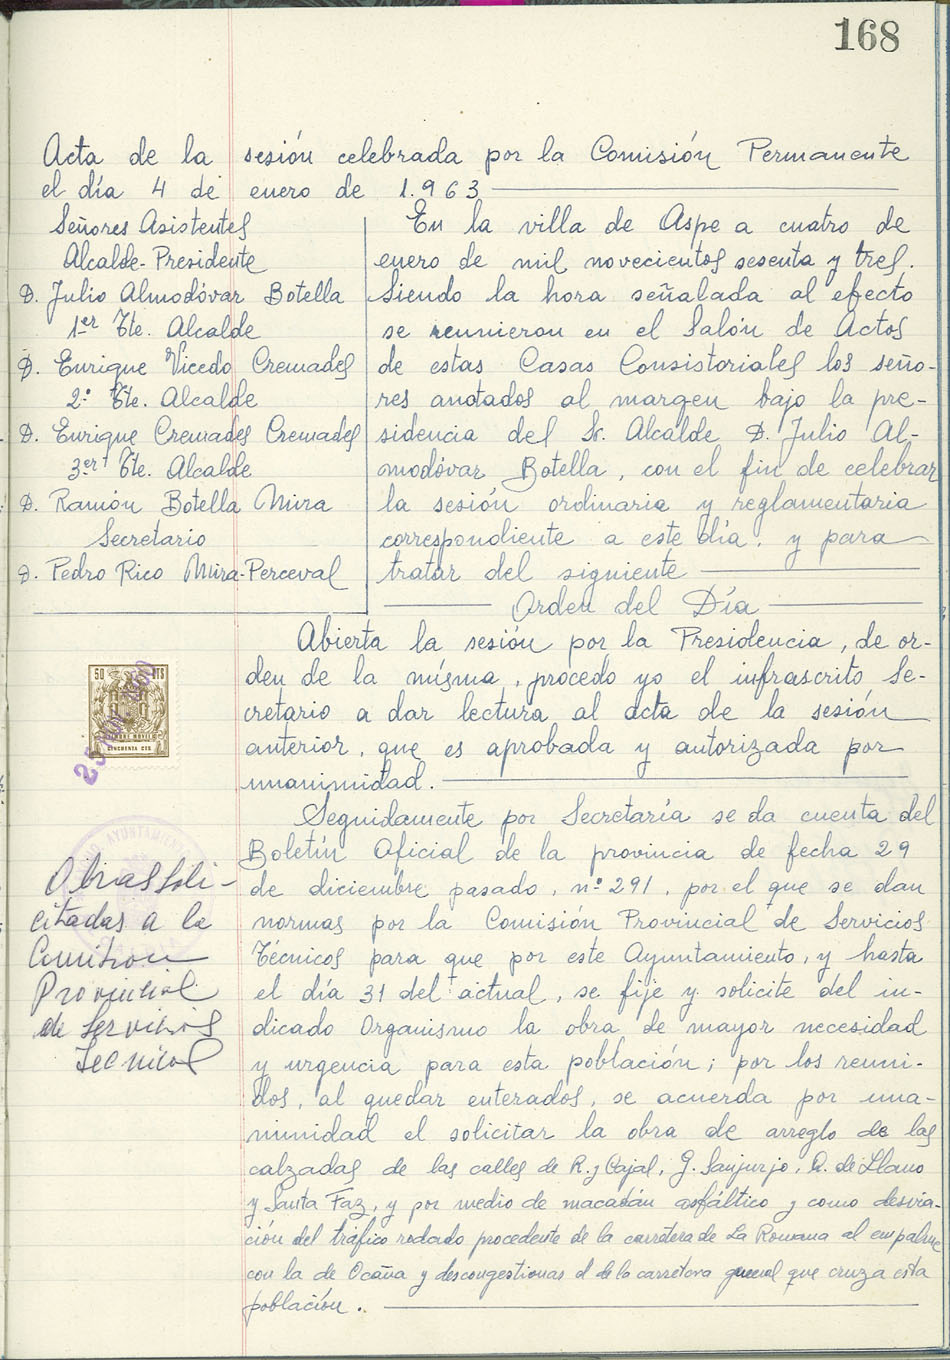 168
Acta de la sesión celebrada por la Comisión Permanente
el día 4 de enero de 1.963
Señores Asistentes
Alcalde-Presidente
D. Julio Almodóvar Botella
1er Tte. Alcalde
D. Enrique Vicedo Cremades
2º Tte. Alcalde
D. Enrique Cremades Cremades
3er Tte. Alcalde
D. Ramón Botella Mira
Secretario
D. Pedro Rico Mira-Perceval
En la villa de Aspe a cuatro de
enero de mil novecientos sesenta y tres.
Siendo la hora señalada al efecto
se reunieron en el Salón de Actos
de estas Casas Consistoriales los seño-
res anotados al margen bajo la pre-
sidencia del Sr. Alcalde D. Julio Al-
modóvar Botella, con el fin de celebrar
la sesión ordinaria y reglamentaria
correspondiente a este día, y para
tratar del siguiente
Orden del Día
Abierta la sesión por la Presidencia, de or-
den de la misma, procedo yo el infrascrito Se-
cretario a dar lectura al acta de la sesión
anterior, que es aprobada y autorizada por
unanimidad.
50 PTS
TIMBRE MOVIL
CINCUENTA CTS
25
AYUNTAMIENTO
Obras soli-
citadas a la
Comision
Provincial
de Servicios
Tecnicos
Seguidamente por Secretaría se da cuenta del
Boletín Oficial de la provincia de fecha 29
de diciembre pasado, nº 291, por el que se dan
normas por la Comisión Provincial de Servicios
Técnicos para que por este Ayuntamiento, y hasta
el día 31 del actual, se fije y solicite del in-
dicado Organismo la obra de mayor necesidad
y urgencia para esta población; por los reuni-
dos, al quedar enterados, se acuerda por una-
nimidad el solicitar la obra de arreglo de las
calzadas de las calles de R. y Cajal, G. Sanjurjo, Q. de Llano
y Santa Faz, y por medio de macadán asfáltico y como desvia-
ción del tráfico rodado procedente de la carretera de La Romana al empalme
con la de Ocaña y descongestionar el de la carretera general que cruza esta
población.